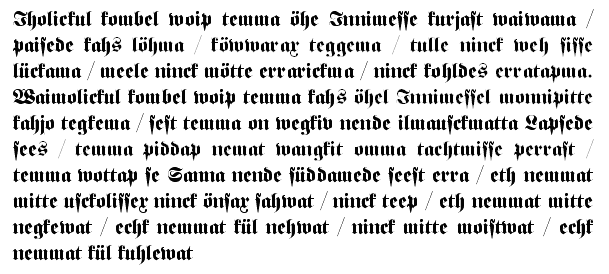 Iholickul kombel woip temma öhe Innimeſſe kurjaſt waiwama /
paiſede kahs löhma / köwwarax teggema / tulle ninck weh ſiſſe
lückama / meele ninck mötte errarickma / ninck kohldes erratapma.
Waimolickul kombel woip temma kahs öhel Innimeſſel monnipitte
kahjo tegkema / ſeſt temma on wegkiv nende ilmauſckmatta Lapſede
ſees / temma piddap nemat wangkit omma tachtmiſſe perraſt /
temma wottap ſe Sanna nende ſüddamede ſeeſt erra / eth nemmat
mitte uſckoliſſex ninck önſax ſahwat / ninck teep / eth nemmat mitte
negkewat / echk nemmat kül nehwat / ninck mitte moiſtwat / echk
nemmat kül kuhlewat